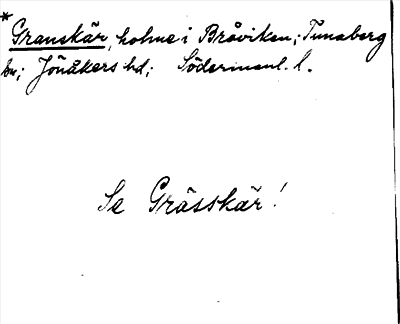 * Granskär, holme i Bråviken; Tunaberg
sn; Jönåkers hd; Södermanl. l.
Se Grässkär!